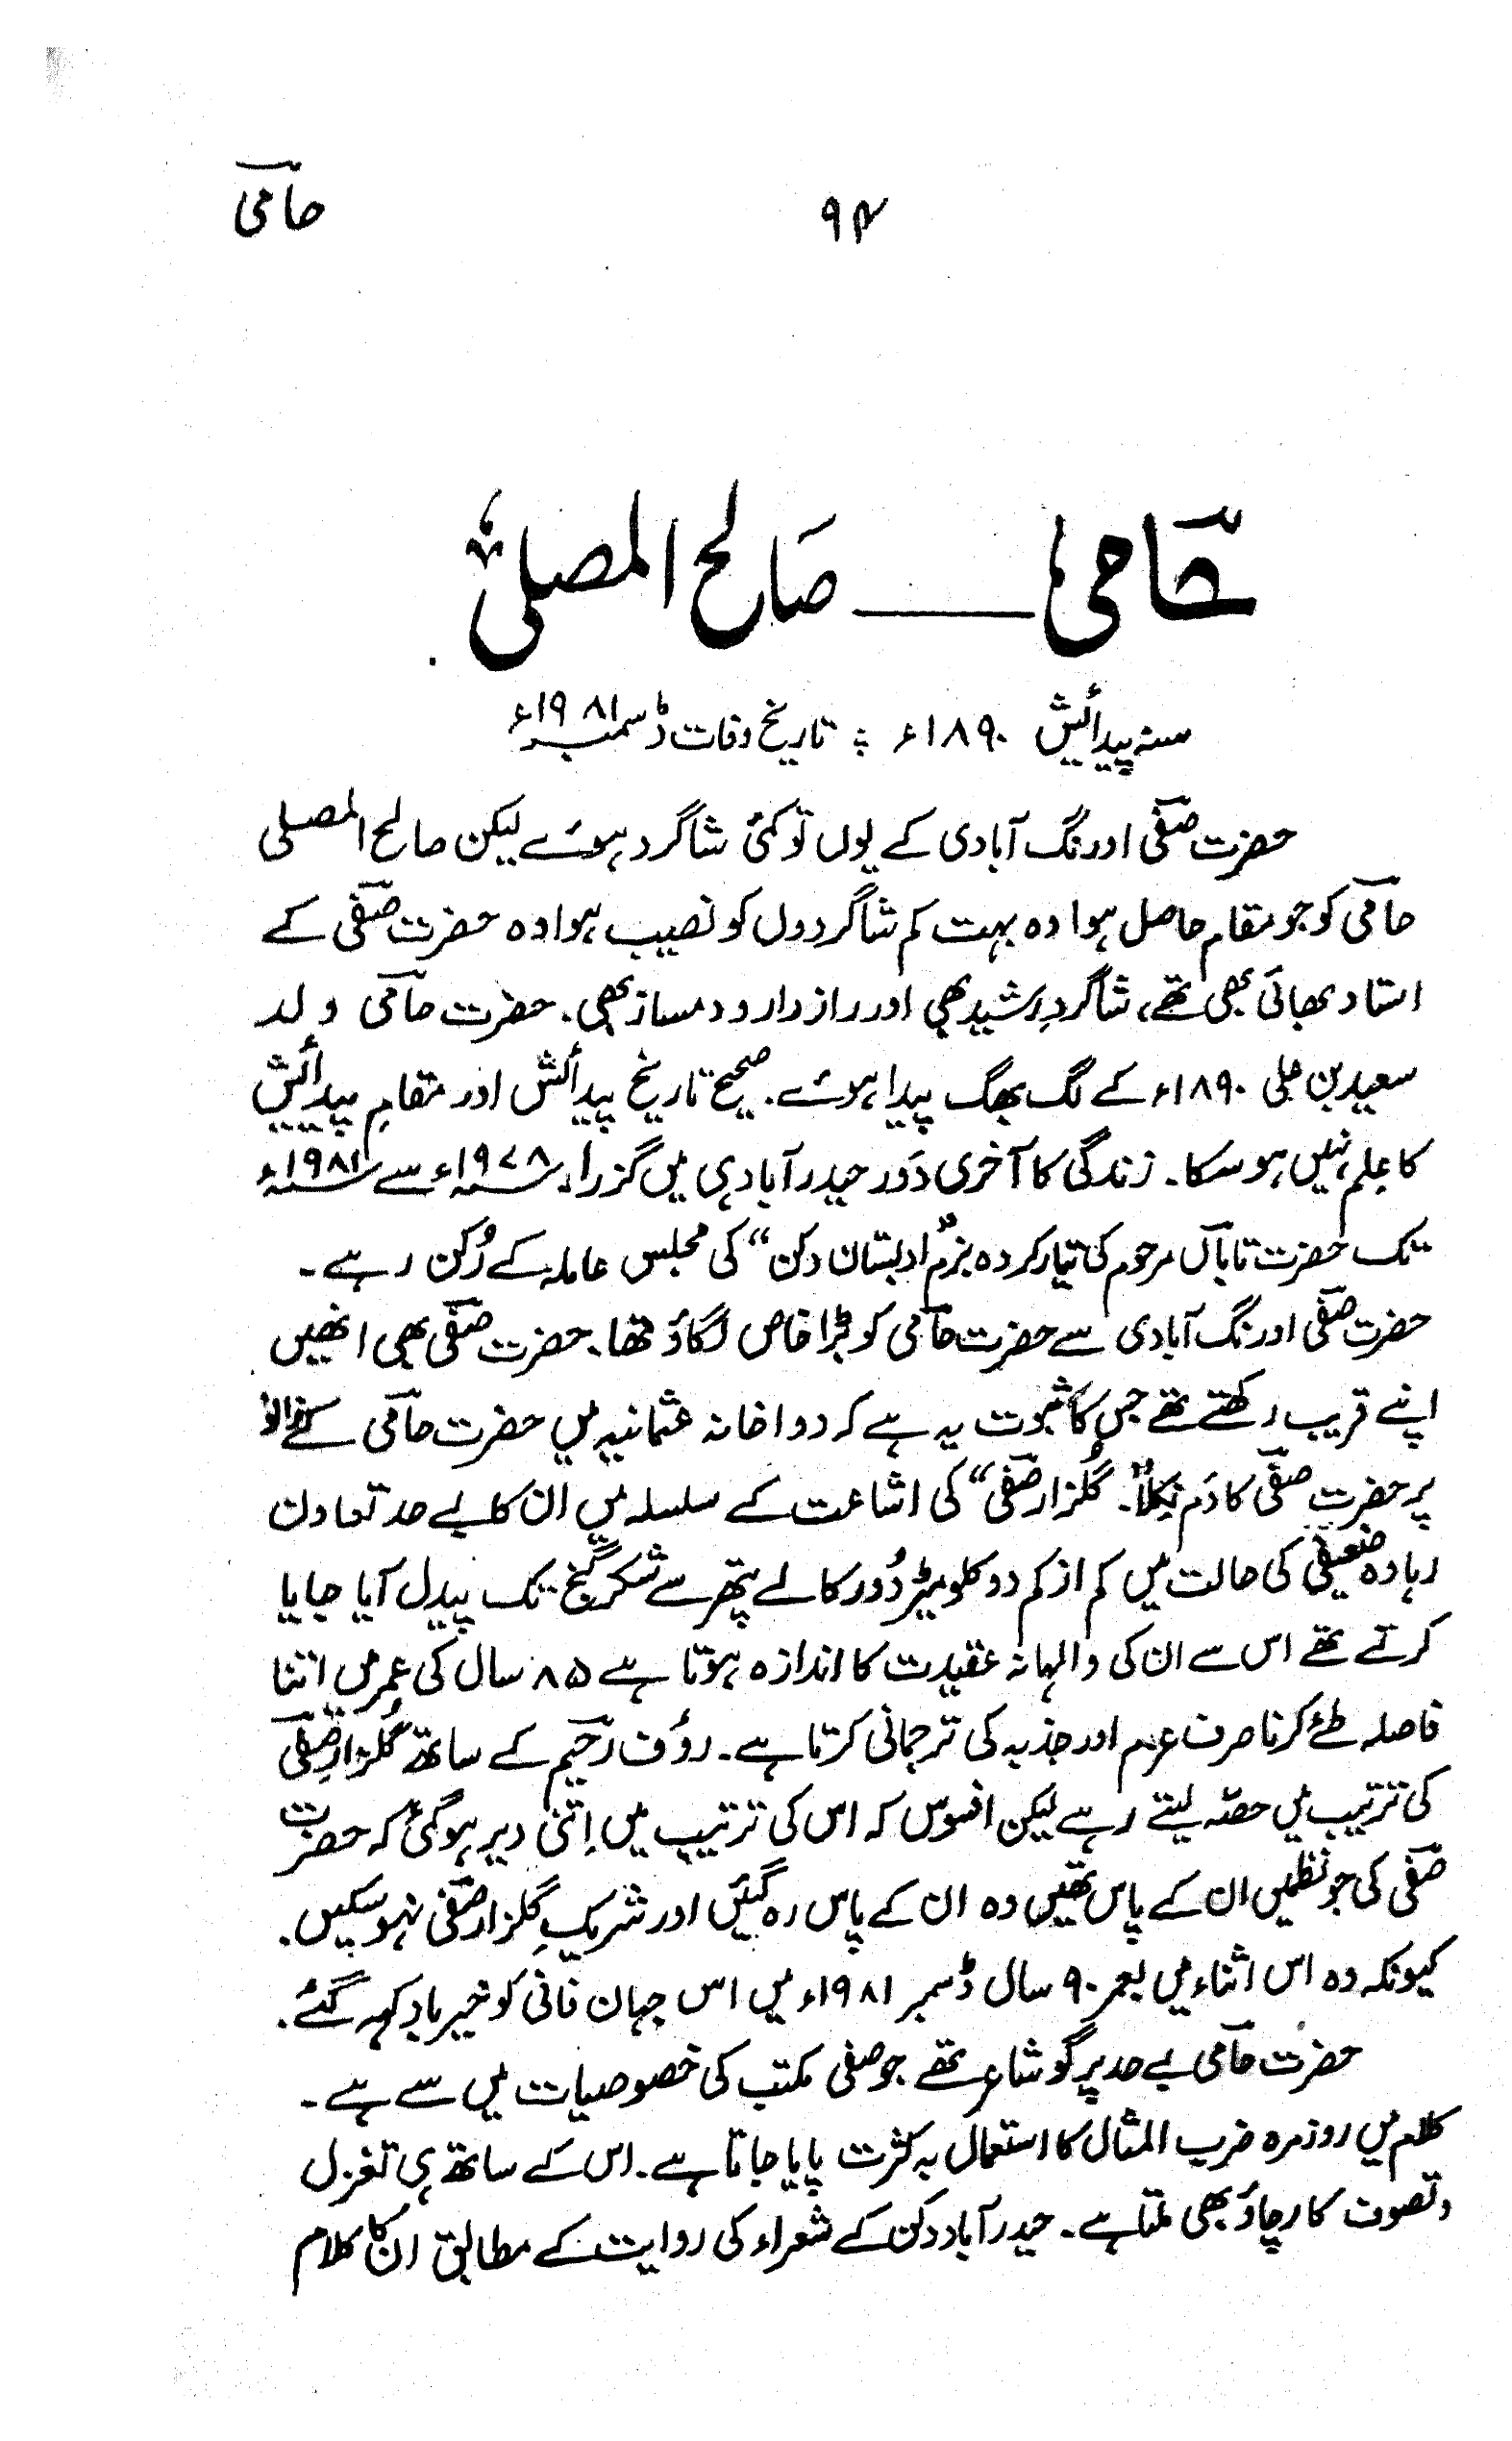 حامیؔ
۹۴
حامیؔ ــــــ صالح المصلی
سنہ پیدائش ۱۸۹۰ء ؛ تاریخ وفات ڈسمبر ۱۹۸۱ء
حضرت صفیؔ اورنگ آبادی کے یوں تو کئی شاگرد ہوئے لیکن صالح المصلی
حامیؔ کو جو مقام حاصل ہوا وہ بہت کم شاگردوں کو نصیب ہوا وہ حضرت صفیؔ کے
استاد بھائی بھی تھے، شاگردِ رشید بھی اور رازدار و دمساز بھی۔ حضرت حامیؔ ولد
سعید بن علی ۱۸۹۰ء کے لگ بھگ پیدا ہوئے۔ صحیح تاریخ پیدائش اور مقامِ پیدائش
کا علم نہیں ہو سکا۔ زندگی کا آخری دَور حیدرآباد ہی میں گزرا۔ ۱۹۷۸ء سے ۱۹۸۱ء
تک حضرت تاباںؔ مرحوم کی تیار کردہ بزم ”ادبستان دکن“ کی مجلس عاملہ کے رُکن رہے۔
حضرت صفیؔ اورنگ آبادی سے حضرت حامیؔ کو بڑا خاص لگاؤ تھا۔ حضرت صفیؔ بھی انھیں
اپنے قریب رکھتے تھے جس کا ثبوت یہ ہے کہ دواخانہ عثمانیہ میں حضرت حامیؔ کے زانو
پر حضرت صفیؔ کا دَم نِکلا۔ ”گلزارِ صفیؔ“ کی اشاعت کے سلسلہ میں ان کا بے حد تعاون
رہا وہ ضعیفی کی حالت میں کم از کم دو کلومیٹر دُور کالے پتھر سے شکر گنج تک پیدل آیا جایا
کرتے تھے اس سے ان کی والہانہ عقیدت کا اندازہ ہوتا ہے ۸۵ سال کی عمر میں اتنا
فاصلہ طئے کرنا صرف عزم اور جذبہ کی ترجمانی کرتا ہے۔ رؤف رحیمؔ کے ساتھ گلزارِ صفیؔ
کی ترتیب میں حصّہ لیتے رہے لیکن افسوس کہ اس کی ترتیب میں اِتنی دیر ہو گئی کہ حضرت
صفیؔ کی جو نظمیں ان کے پاس تھیں وہ ان کے پاس رہ گئیں اور شریکِ گلزارِ صفیؔ نہ ہو سکیں۔
کیونکہ وہ اس اثناء میں بعمر ۹۰ سال ڈسمبر ۱۹۸۱ء میں اس جہان فانی کو خیرباد کہہ گئے۔
حضرت حامیؔ بے حد پرگو شاعر تھے جو صفی مکتب کی خصوصیات میں سے ہے۔
کلام میں روزمرہ ضرب المثال کا استعمال بہ کثرت پایا جاتا ہے۔ اس کے ساتھ ہی تغزل
و تصوف کا رچاؤ بھی ملتا ہے۔ حیدرآباد دکن کے شعراء کی روایت کے مطابق ان کا کلام